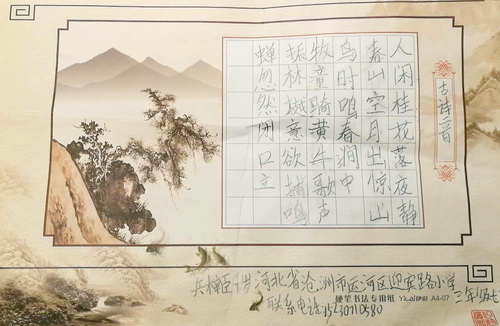 古诗二首
人闲桂花落夜静
春山空月出惊山
鸟时鸣春涧中
牧童骑黄牛歌声
振林樾意欲捕鸣
蝉忽然闭口立
河北省沧洲市运河区迎宾路小学
三年级七
联系电话
硬笔书法专用纸 A4-07